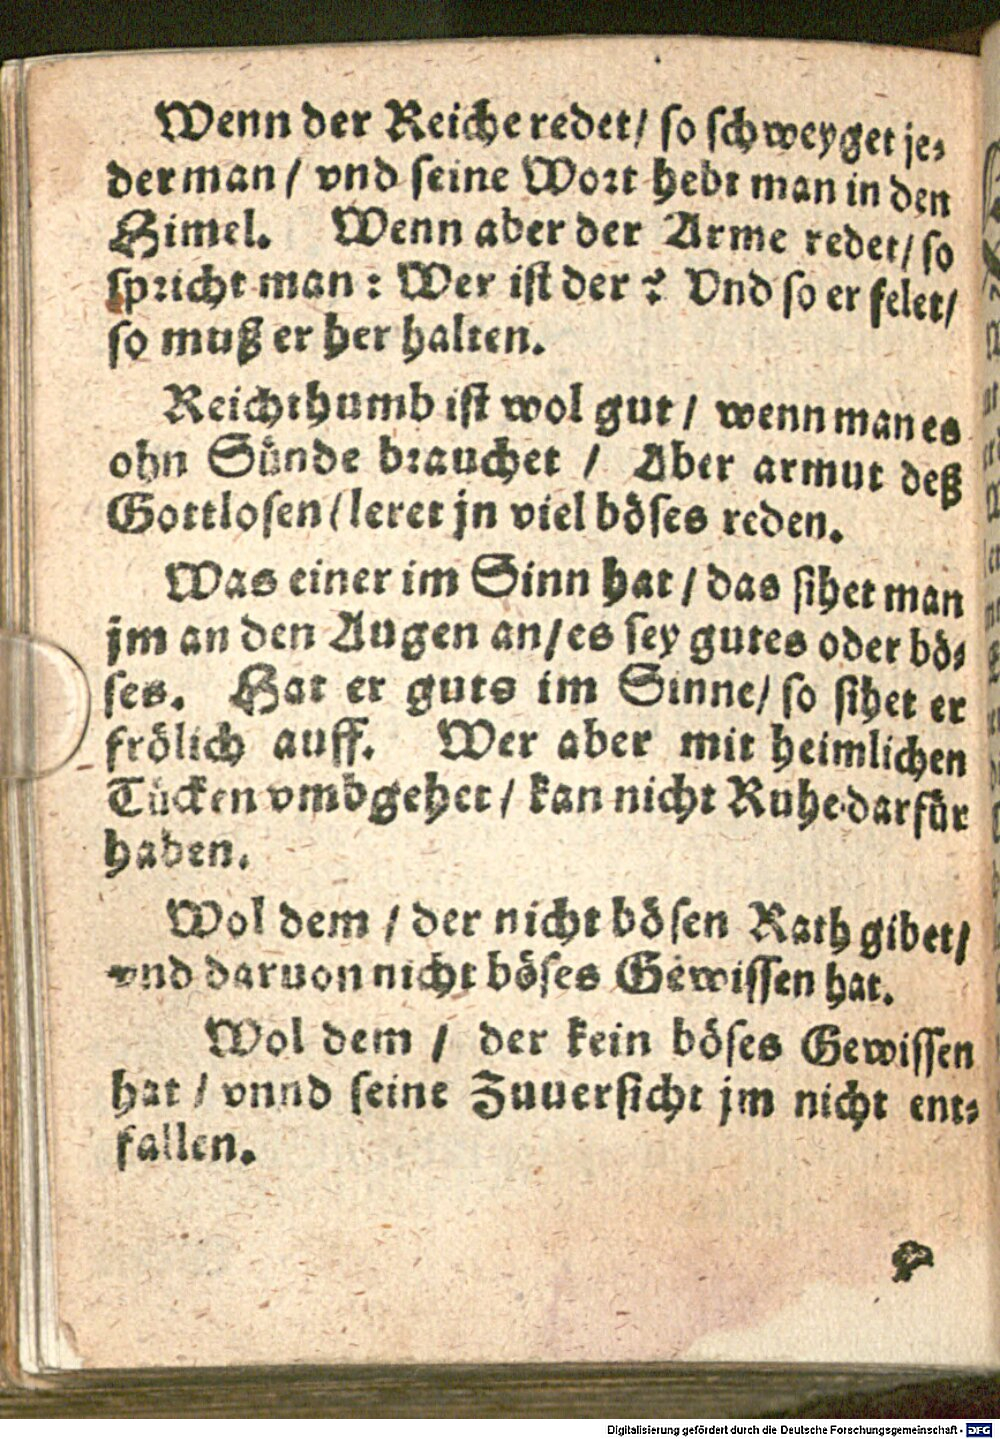 Wenn der Reiche redet/ so schweyget je⸗
derman / vnd seine Wort hebt man in den
Himel. Wenn aber der Arme redet/ so
spricht man : Wer ist der ? Vnd so er felet/
so muß er her halten.
Reichthumb ist wol gut / wenn man es
ohn Sünde brauchet / Aber armut deß
Gottlosen/ leret jn viel böses reden.
Was einer im Sinn hat / das sihet man
jm an den Augen an/ es sey gutes oder bö⸗
ses. Hat er guts im Sinne/ so sihet er
frölich auff. Wer aber mit heimlichen
Tücken vmbgehet / kan nicht Ruhe darfür
haben.
Wol dem / der nicht bösen Rath gibet/
vnd daruon nicht böses Gewissen hat.
Wol dem / der kein böses Gewissen
hat / vnnd seine Zuuersicht jm nicht ent⸗
fallen.
Digitalisierung gefördert durch die Deutsche Forschungsgemeinschaft - DFG